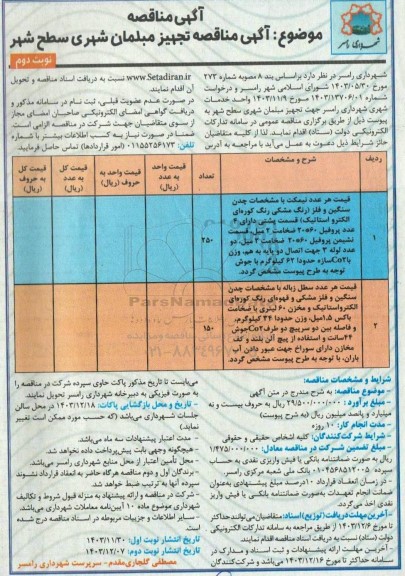 آگهی مناقصه
موضوع: آگهی مناقصه تجهیز مبلمان شهری سطح شهر
نوبت دوم
شهرداری رامسر
شهرداری رامسر در نظر دارد براساس بند ۸ مصوبه شماره ۲۷۳
مورخ ۱۴۰۳/۰۵/۳۰ شورای اسلامی شهر رامسر و درخواست
شماره ۱۴۰۳/۱۳۷۰۶/۰۱ مورخ ۱۴۰۳/۱۱/۰۹ واحد خدمات
شهری شهرداری رامسر جهت تجهیز مبلمان شهری سطح شهر به
پیوست ذیل از طریق برگزاری مناقصه عمومی در سامانه تدارکات
الکترونیکی دولت (ستاد) اقدام نماید. لذا از کلیه متقاضیان
حائز شرایط ذیل دعوت به عمل می آید با مراجعه به آدرس
www.Setadiran.ir نسبت به دریافت اسناد مناقصه و تحویل
آن اقدام نمایند.
در صورت عدم عضویت قبلی، ثبت نام در سامانه مذکور و
دریافت گواهی امضای الکترونیکی صاحبان امضای مجاز
از سوی متقاضیان جهت شرکت در مناقصه الزامی است.
ضمنا در صورت نیاز به کسب اطلاعات بیشتر با شماره
تلفن: ۰۱۱۵۵۲۵۶۱۷۳ (امور قراردادها) تماس حاصل فرمایید.
ردیف شرح و مشخصات تعداد قیمت واحد به عدد (ریال) قیمت واحد به حروف (ریال) قیمت کل به عدد (ریال) قیمت کل به حروف (ریال)
۱
قیمت هر عدد نیمکت با مشخصات چدن
سنگین و فلز (رنگ مشکی رنگ کوره‌ای
الکترو استاتیک) قسمت پشتی دارای ۴
عدد پروفیل ۶۰*۲۰ ضخامت ۲ میل، قسمت
نشیمن پروفیل ۶۰*۲۰ ضخامت ۳ میل، دو
عدد لوله ۳ جهت اتصال دو پایه به هم، وزن
سازه حدودا ۶۲ کیلوگرم با جوش Co۲ با
توجه به طرح پیوست مشخص گردد.
۲۵۰
۲
قیمت هر عدد سطل زباله با مشخصات چدن
سنگین و فلز مشکی و قهوه‌ای رنگ کوره‌ای
الکترواستاتیک و مخزن ۶۰ لیتری با ضخامت
پاکس ۱.۵میل، وزن حدودا ۳۴ کیلوگرم،
و فاصله بین دو سرپیچ دو طرف Co۲جوش
۴۴سانت و استفاده از پیچ آلن بلند و کف
مخازن دارای سوراخ جهت عبور دادن آب
باران، با توجه به طرح پیوست مشخص گردد.
۱۵۰
شرایط و مشخصات مناقصه:
- موضوع مناقصه: به شرح مندرج در متن آگهی
- مبلغ برآورد: ۲۹/۵۰۰/۰۰۰/۰۰۰ ریال به حروف بیست و نه
میلیارد و پانصد میلیون ریال (به شرح پیوست)
- مدت انجام کار: ۱۰ روزه
- شرایط شرکت‌کنندگان: کلیه اشخاص حقیقی و حقوقی
- مبلغ تضمین شرکت در مناقصه معادل: ۱/۴۷۵/۰۰۰/۰۰۰
ریال به صورت ضمانتنامه بانکی یا فیش واریزی نقدی به حساب
سپرده ۰۱۰۴۵۶۸۵۱۲۰۰۵ بانک ملی شعبه مرکزی رامسر.
- در زمان انعقاد قرارداد ۱۰درصد مبلغ پیشنهادی به‌عنوان
ضمانت انجام تعهدات به‌صورت ضمانتنامه بانکی یا فیش واریز
نقدی اخذ می‌گردد.
- آخرین مهلت دریافت (توزیع) اسناد: متقاضیان می‌توانند حداکثر
تا مورخ ۱۴۰۳/۱۲/۶ از طریق مراجعه به سامانه تدارکات الکترونیکی
دولت (ستاد) نسبت به دریافت اسناد مناقصه اقدام نمایند.
- آخرین مهلت ارائه پیشنهادات و ثبت اسناد و مدارک در
سامانه حداکثر تا مورخ ۱۴۰۳/۱۲/۱۶ می‌باشد و شرکت‌کنندگان
می‌بایست تا تاریخ مذکور پاکت حاوی سپرده شرکت در مناقصه را
به صورت فیزیکی به دبیرخانه شهرداری رامسر تحویل نمایند.
- تاریخ و محل بازگشایی پاکات: ۱۴۰۳/۱۲/۱۸ در محل سالن
جلسات شهرداری می‌باشد (که حسب مورد ممکن است تغییر
نماید)
- مدت اعتبار پیشنهادات سه ماه می‌باشد.
- هیچگونه وجهی بابت پیش‌پرداخت داده نخواهد شد.
- محل تأمین اعتبار از محل منابع شهرداری رامسر می‌باشد.
- برندگان اول و دوم مناقصه هرگاه حاضر به انعقاد قرارداد نشوند
سپرده آنها به ترتیب ضبط خواهد شد.
- شرکت در مناقصه و ارائه پیشنهاد به منزله قبول شروط و تکالیف
شهرداری موضوع ماده ۱۰ آیین‌نامه معاملات شهرداری می‌باشد.
- سایر اطلاعات و جزییات مربوطه در اسناد مناقصه درج شده
است.
تاریخ انتشار نوبت اول: ۱۴۰۳/۱۱/۳۰
تاریخ انتشار نوبت دوم: ۱۴۰۳/۱۲/۰۷
مصطفی گلجاری‌مقدم - سرپرست شهرداری رامسر